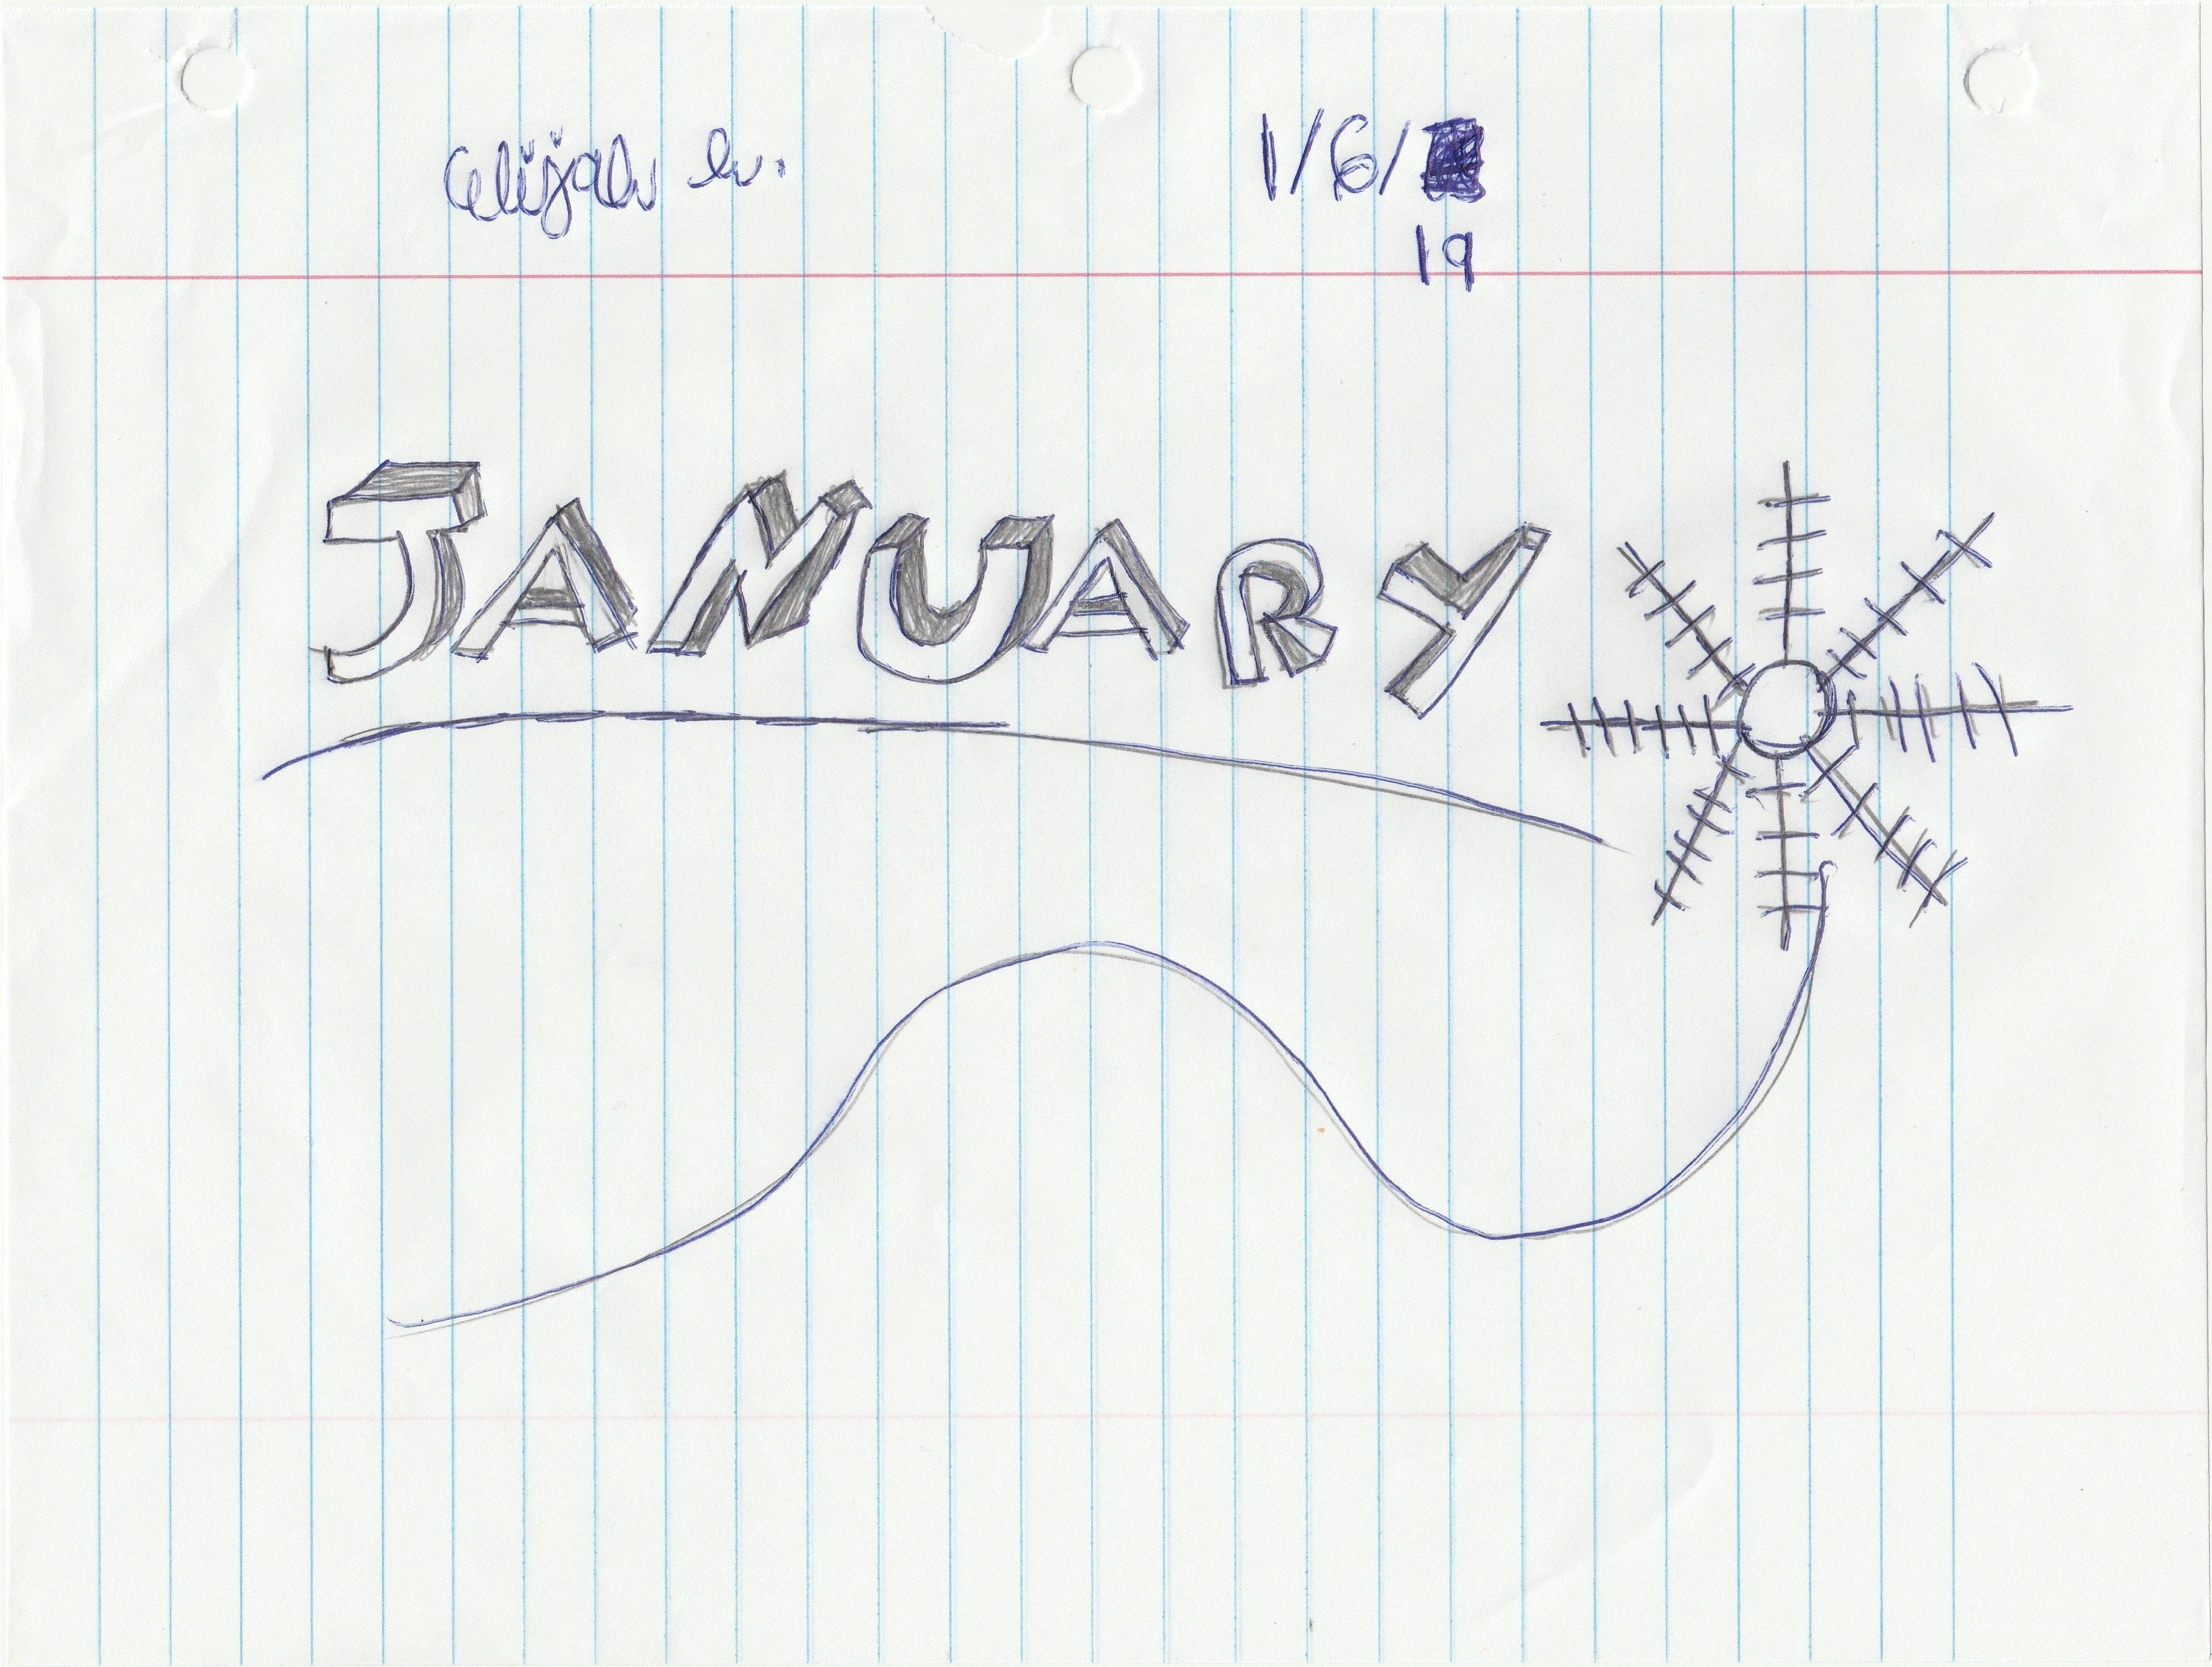 elijah h. 1/6/
19
JANUARY